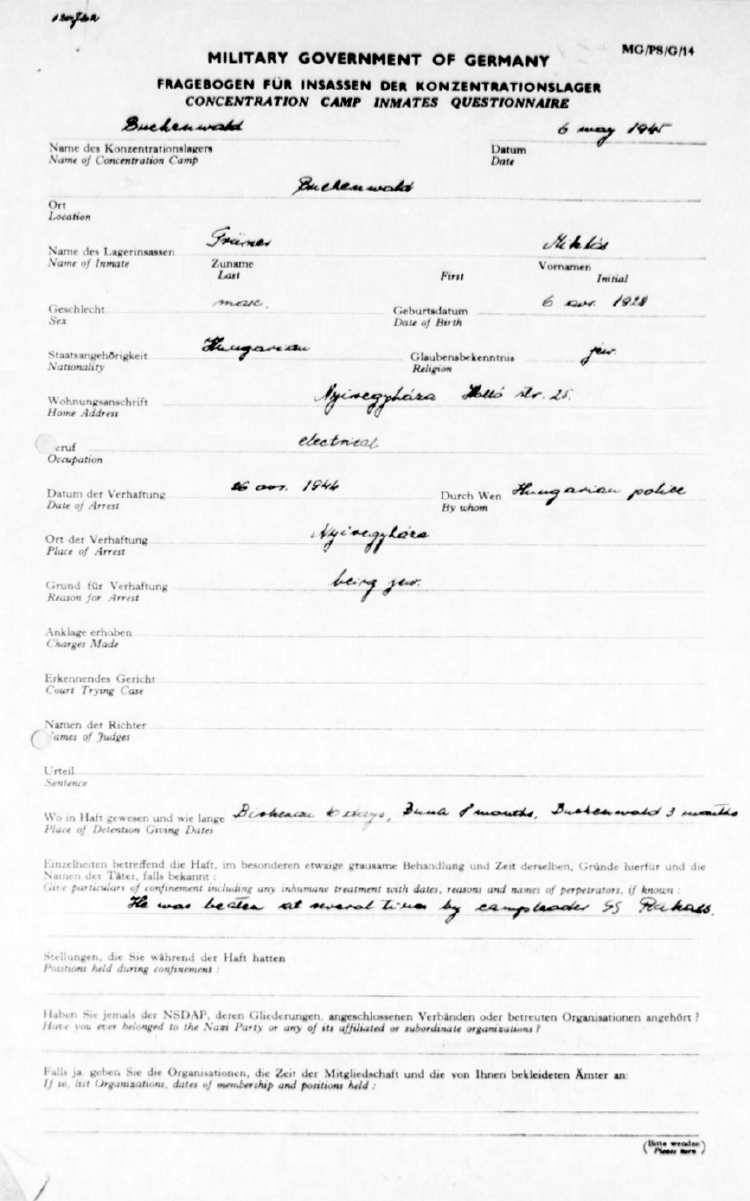 MG/PS/G/14
MILITARY GOVERNMENT OF GERMANY
FRAGEBOGEN FÜR INSASSEN DER KONZENTRATIONSLAGER
CONCENTRATION CAMP INMATES QUESTIONNAIRE
Buchenwald 6 may 1945
Name des Konzentrationslagers Datum
Name of Concentration Camp Date
Buchenwald
Ort
Location
Miklós
Name des Lagerinsassen Zuname Vornamen
Name of Inmate Last First Initial
masc. 6 1928
Geschlecht Geburtsdatum
Sex Date of Birth
Hungarian jew.
Staatsangehörigkeit Glaubensbekenntnis
Nationality Religion
Nyiregyháza str. 25.
Wohnungsanschrift
Home Address
electrical
eruf
Occupation
26 1944 Hungarian police
Datum der Verhaftung Durch Wen
Date of Arrest By whom
Nyiregyháza
Ort der Verhaftung
Place of Arrest
being jew.
Grund für Verhaftung
Reason for Arrest
Anklage erhoben
Charges Made
Erkennendes Gericht
Court Trying Case
Namen der Richter
ames of Judges
Urteil
Sentence
Birkenau days, Buna 8 months, Buchenwald 3 months
Wo in Haft gewesen und wie lange
Place of Detention Giving Dates
Einzelheiten betreffend die Haft, im besonderen etwaige grausame Behandlung und Zeit derselben, Gründe hierfür und die
Namen der Täter, falls bekannt :
Give particulars of confinement including any inhumane treatment with dates, reasons and names of perpetrators, if known :
He was beaten at several times by campleader SS
Stellungen, die Sie während der Haft hatten
Positions held during confinement :
Haben Sie jemals der NSDAP, deren Gliederungen, angeschlossenen Verbänden oder betreuten Organisationen angehört ?
Have you ever belonged to the Nazi Party or any of its affiliated or subordinate organizations ?
Falls ja, geben Sie die Organisationen, die Zeit der Mitgliedschaft und die von Ihnen bekleideten Ämter an:
If so, list Organizations, dates of membership and positions held :
(Bitte wenden)
Please turn